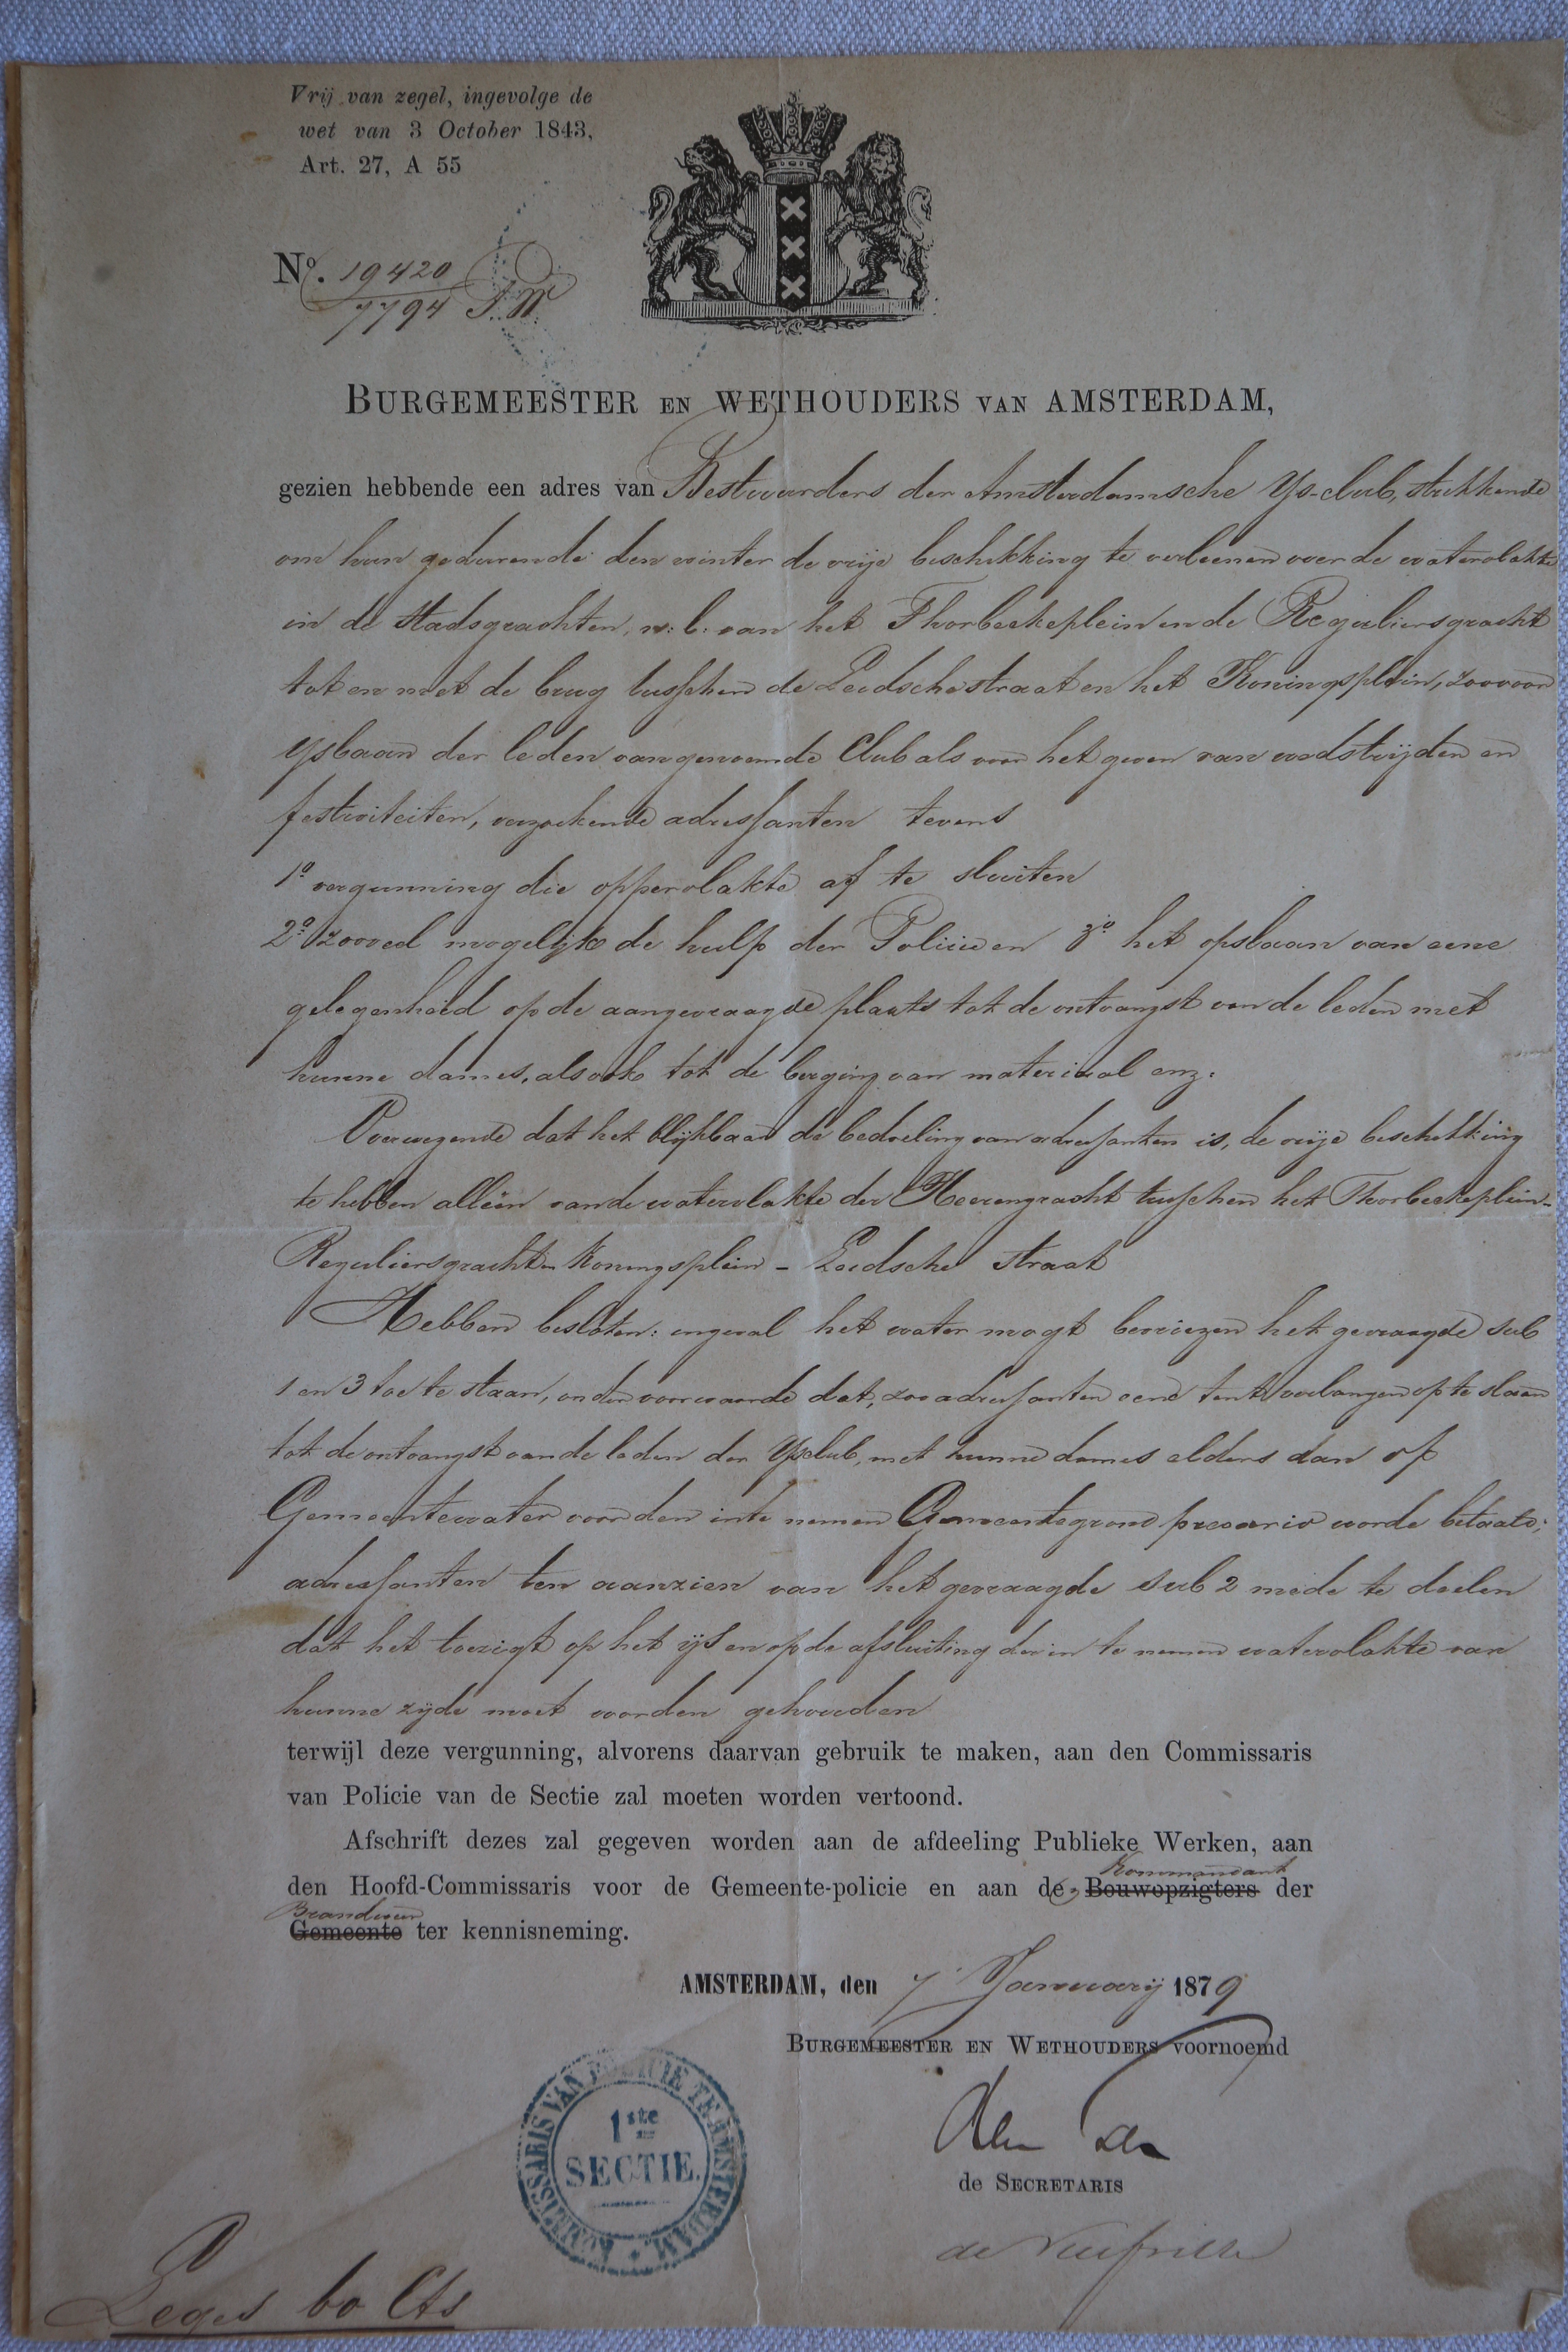 Vrij van zegel, ingevolge de
wet van 3 October 1843,
Art. 27, A 55
No. 19420
7794 P.W.
BURGEMEESTER EN WETHOUDERS VAN AMSTERDAM,
gezien hebbende een adres van Bestuurders der Amsterdamsche Ys-club, strekkende
om hun gedurende den winter de vrije beschikking te verleenen over de watervlakte
in de Stadsgrachten, n: l: van het Thorbeckeplein en de Reguliersgracht
tot en met de brug tusschen de Leidschestraat en het Koningsplein, zoo voor
ysbaan der leden van genoemde Club als voor het geven van wedstrijden en
festiviteiten, verzoekende adressanten tevens
1o vergunning die oppervlakte af te sluiten
2o zooveel mogelijk de hulp der Policie en 3o het opslaan van eene
gelegenheid op de aangevraagde plaats tot de ontvangst van de leden met
hunne dames, alsook tot de berging van materiaal enz:
Overwegende dat het blijkbaar de bedoeling van adressanten is, de vrije beschikking
te hebben alléén van de watervlakte der Heerengracht tusschen het Thorbeckeplein-
Reguliersgracht en Koningsplein - Leidsche straat
Hebben besloten: ingeval het water mogt bevriezen het gevraagde sub
1 en 3 toe te staan, onder voorwaarde dat, zoo adressanten eene tent verlangen op te slaan
tot de ontvangst van de leden der Ysclub, met hunne dames elders dan op
Gemeentewater voor den in te nemen Gemeentegrond precario worde betaald;
adressanten ten aanzien van het gevraagde sub 2 mede te deelen
dat het toezigt op het ijs en op de afsluiting der in te nemen watervlakte van
hunne zijde moet worden gehouden
terwijl deze vergunning, alvorens daarvan gebruik te maken, aan den Commissaris
van Policie van de Sectie zal moeten worden vertoond.
Afschrift dezes zal gegeven worden aan de afdeeling Publieke Werken, aan
Kommandant
den Hoofd-Commissaris voor de Gemeente-policie en aan de Bouwopzigters der
Brandweer
Gemeente ter kennisneming.
AMSTERDAM, den 7 Januarij 1879
BURGEMEESTER EN WETHOUDERS voornoemd
den Tex
de SECRETARIS
de Neufville
COMMISSARIS VAN POLICIE TE AMSTERDAM
1ste
SECTIE.
Leges 60 Cts